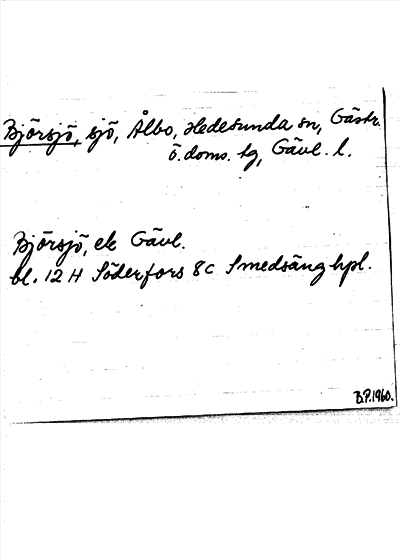 Björsjö, sjö, Ålbo, Hedesunda sn, Gästr.
ö. doms. tg, Gävl. l.
Björsjö, ek Gävl.
bl. 12 H Söderfors 8c Smedsäng hpl.
B.P. 1960.